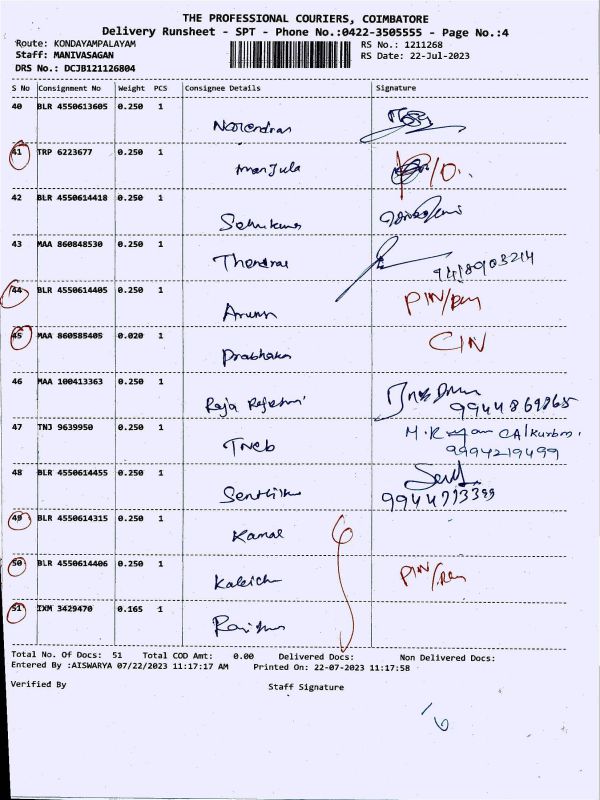 THE PROFESSIONAL COURIERS, COIMBATORE
Delivery Runsheet - SPT - Phone No.:0422-3505555 - Page No.:4
Route: KONDAYAMPALAYAM RS No.: 1211268
Staff: MANIVASAGAN RS Date: 22-Jul-2023
DRS No.: DCJB121126804
S No Consignment No Weight PCS Consignee Details Signature
40 BLR 4550613605 0.250 1
Narendran
41 TRP 6223677 0.250 1
Manjula
42 BLR 4550614418 0.250 1
43 MAA 860848530 0.250 1
Thendral
44 BLR 4550614405 0.250 1
Arunn PIN/
45 MAA 860585405 0.020 1
Prabhakar CIN
46 MAA 100413363 0.250 1
Raja
47 TNJ 9639950 0.250 1
Tneb 9994219499
48 BLR 4550614455 0.250 1
Senthil
49 BLR 4550614315 0.250 1
Kamal 6
50 BLR 4550614406 0.250 1
PIN/
51 IXM 3429470 0.165 1
Total No. Of Docs: 51 Total COD Amt: 0.00 Delivered Docs: Non Delivered Docs:
Entered By :AISWARYA 07/22/2023 11:17:17 AM Printed On: 22-07-2023 11:17:58
Verified By Staff Signature